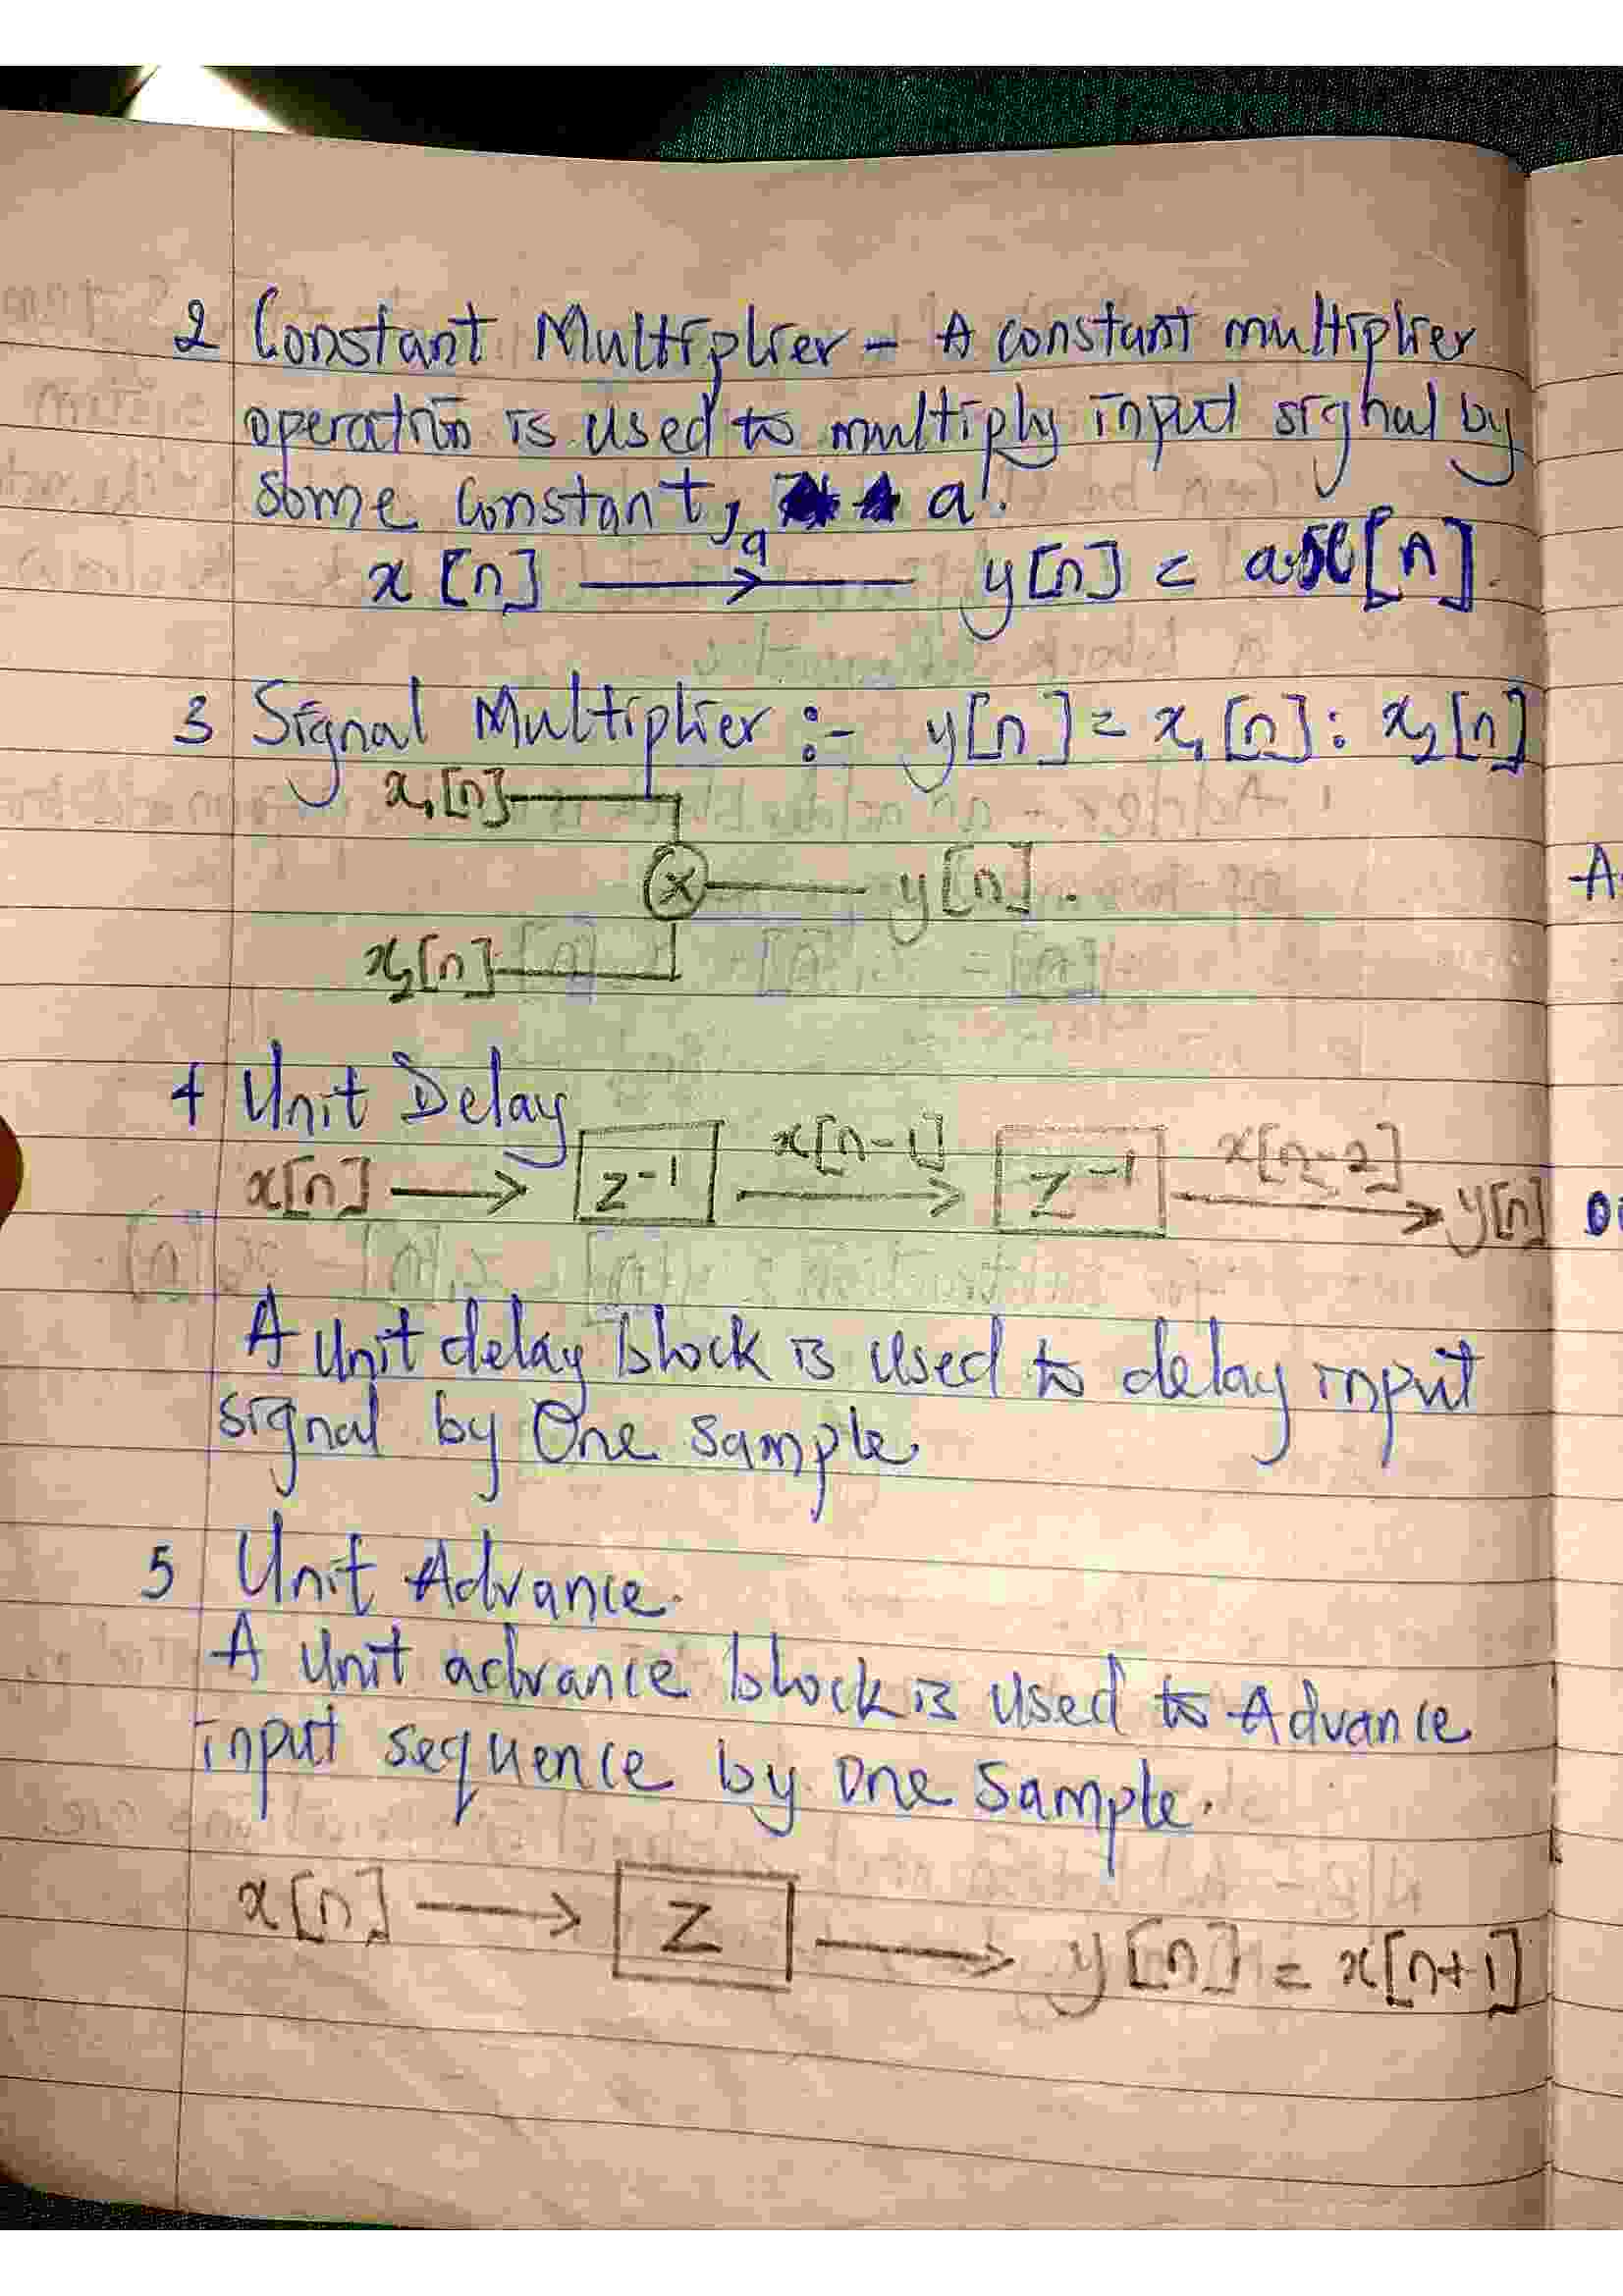 2 Constant Multiplier - A constant multiplier
operation is used to multiply input signal by
some constant, a'.
x[n] a y[n] = a x[n].
3 Signal Multiplier :- y[n] = x₁[n] : x₂[n]
x₁[n]
x y[n].
x₂[n]
4 Unit Delay
x[n] z⁻¹ x[n-1] z⁻¹ x[n-2] y[n]
A Unit delay block is used to delay input
signal by One sample
5 Unit Advance.
A Unit advance block is used to Advance
input sequence by One Sample.
x[n] Z y[n] = x[n+1]